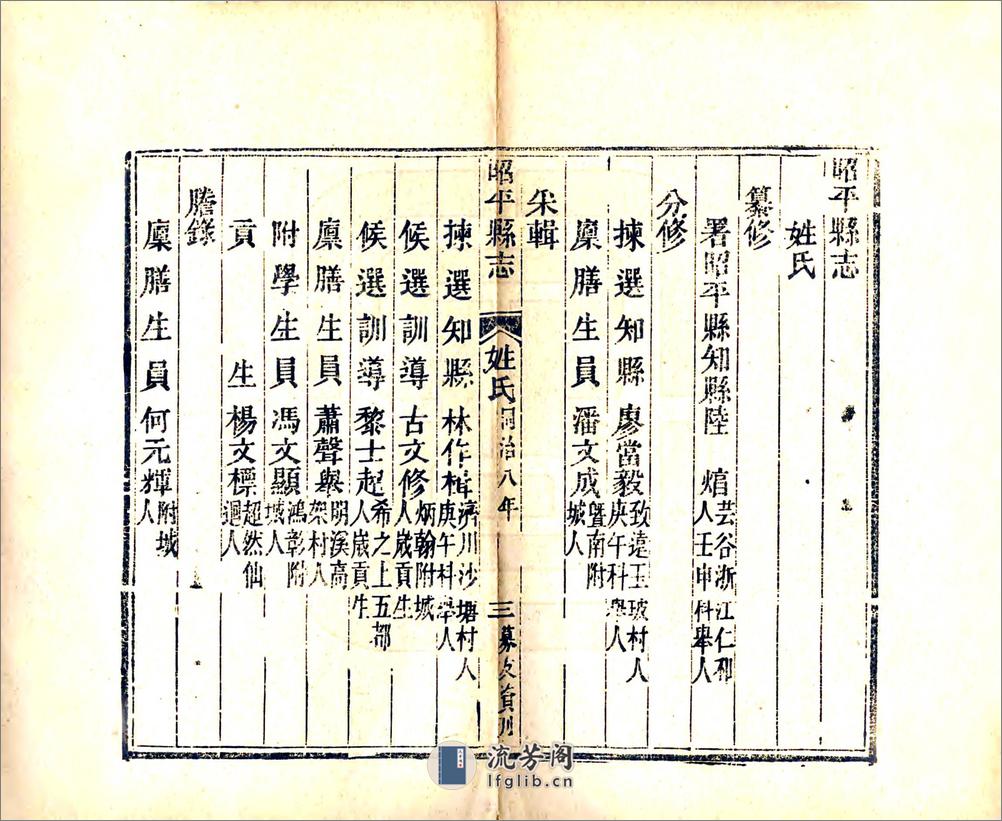 昭平縣志
姓氏
纂修
署昭平縣知縣陸 焴芸谷浙江仁和人壬申科舉人
分修
揀選知縣廖當毅致遠玉玻村人庚午科舉人
廩膳生員潘文成暨南附城人
采輯
昭平縣志 姓氏 同治八年 三
揀選知縣林作楫濟川沙塘村人庚午科舉人
候選訓導古文修炳翰附城人歲貢生
候選訓導黎士起希之上五都人歲貢生
廩膳生員蕭聲舉明溪高架村人
附學生員馮文顯鴻彰附城人
貢生楊文標超然仙迴人
謄錄
廩膳生員何元輝附城人
流芳阁
lfglib.cn